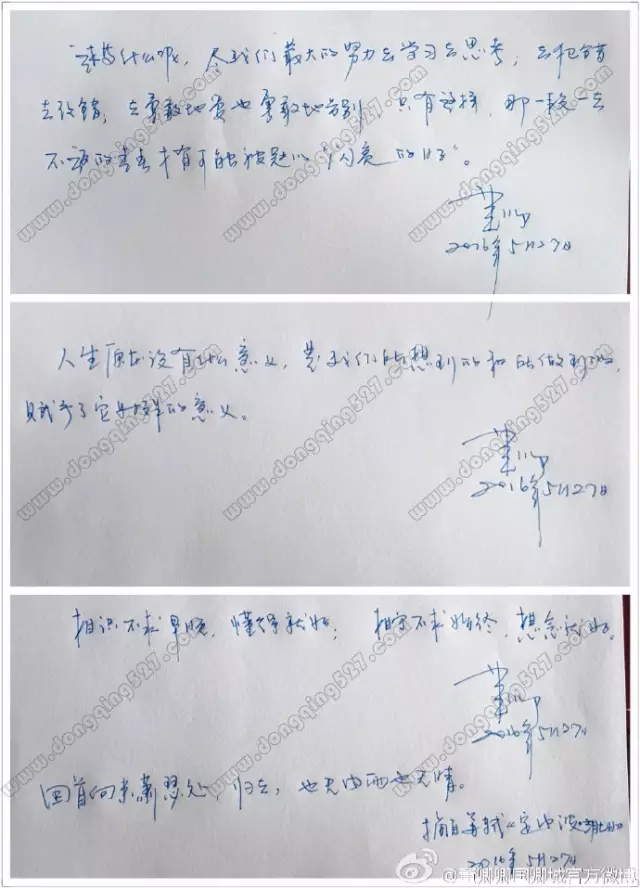 什么呢，尽我们最大的努力去学习去思考，去犯错
去改错，去勇敢地爱也勇敢地告别，只有这样，那一段一去
不返的青春才有可能被冠以“闪亮的日子”。
董卿
2016年5月27日
人生原本没有什么意义，是我们能想到的和能做到的，
赋予了它的意义。
董卿
2016年5月27日
相识不求早晚，懂得就好；相守不求始终，想念就好。
董卿
2016年5月27日
回首向来萧瑟处，归去，也无风雨也无情。
摘自苏轼《定风波
2016年5月27日
www.dongqing527.com
www.dongqing527.com
www.dongqing527.com
www.dongqing527.com
www.dongqing527.com
www.dongqing527.com